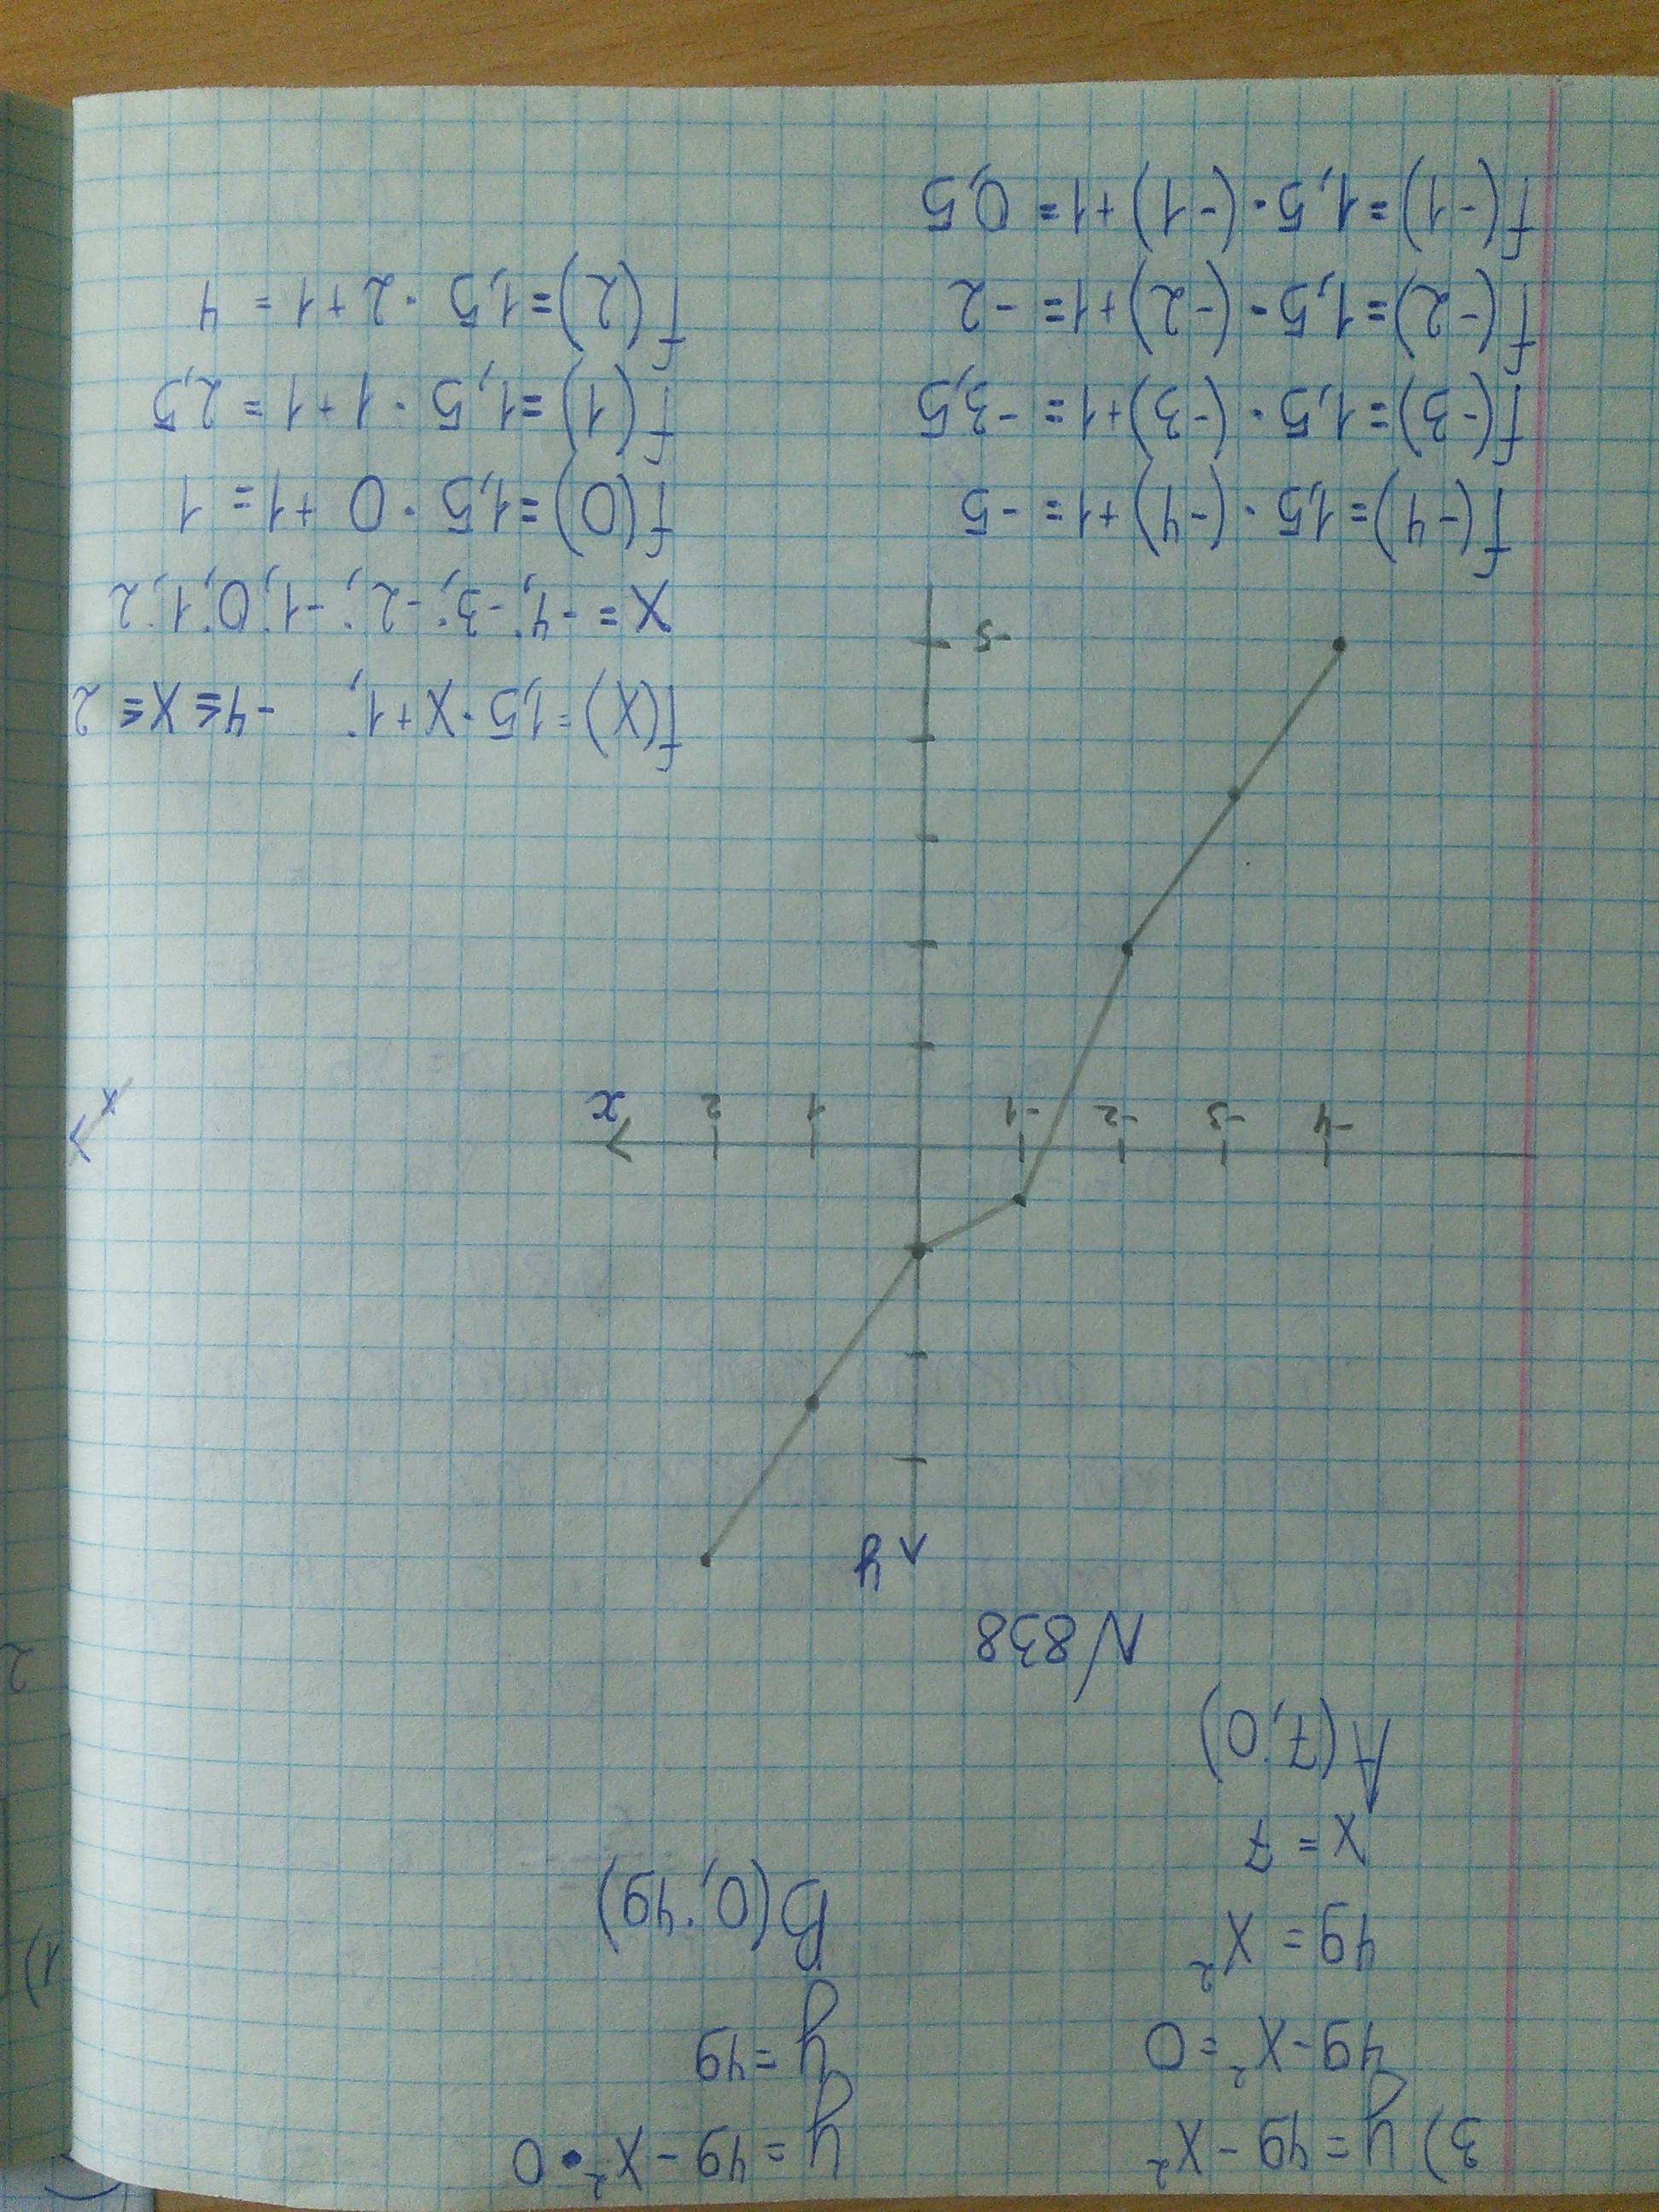 3) y = 49 - x²
49 - x² = 0
49 = x²
x = 7
A(7; 0)
y = 49 - x² • 0
y = 49
B(0; 49)
N 838
y
x
-4 -3 -2 -1 1 2
-5
x
f(x) = 1,5 · x + 1; -4 ≤ x ≤ 2
x = -4; -3; -2; -1; 0; 1; 2
f(-4) = 1,5 · (-4) + 1 = -5
f(-3) = 1,5 · (-3) + 1 = -3,5
f(-2) = 1,5 · (-2) + 1 = -2
f(-1) = 1,5 · (-1) + 1 = 0,5
f(0) = 1,5 · 0 + 1 = 1
f(1) = 1,5 · 1 + 1 = 2,5
f(2) = 1,5 · 2 + 1 = 4
1)
2